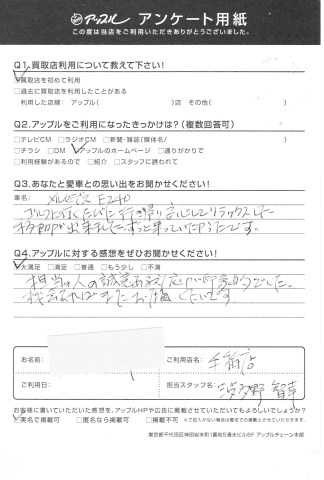 アップル アンケート用紙
この度は当店をご利用いただきありがとうございました。
Q1.買取店利用について教えて下さい!
☑買取店を初めて利用
□過去に買取店を利用したことがある
利用した店舗: アップル( )店 その他( )
Q2.アップルをご利用になったきっかけは?(複数回答可)
□テレビCM □ラジオCM □新聞・雑誌(媒体名/ )
□チラシ □DM ☑アップルのホームページ □通りがかりで
□利用経験があるので □紹介 □スタッフに誘われて
Q3.あなたと愛車との思い出をお聞かせください!
車名: メルセデス E240
ゴルフに行くたびに行き帰り
リラックスした
移動が出来ました。ずっと乗っていたかったです。
Q4.アップルに対する感想をぜひお聞かせください!
☑大満足 □満足 □普通 □もう少し □不満
担当の人の誠意ある対応が印象的でした。
機会があればまたお願いしたいです
お名前:
ご利用店名: 千葡店
ご利用日:
担当スタッフ名: 波多野 智幸
お客様に書いていただいた感想を、アップルHPや広告に掲載させていただいてもよろしいでしょうか?
☑実名で掲載可 □匿名なら掲載可 □掲載不可 ※ご記入がない場合は匿名での掲載とさせていただきます。
東京都千代田区神田谷本町1番地5清水ビル6F アップルチェーン本部